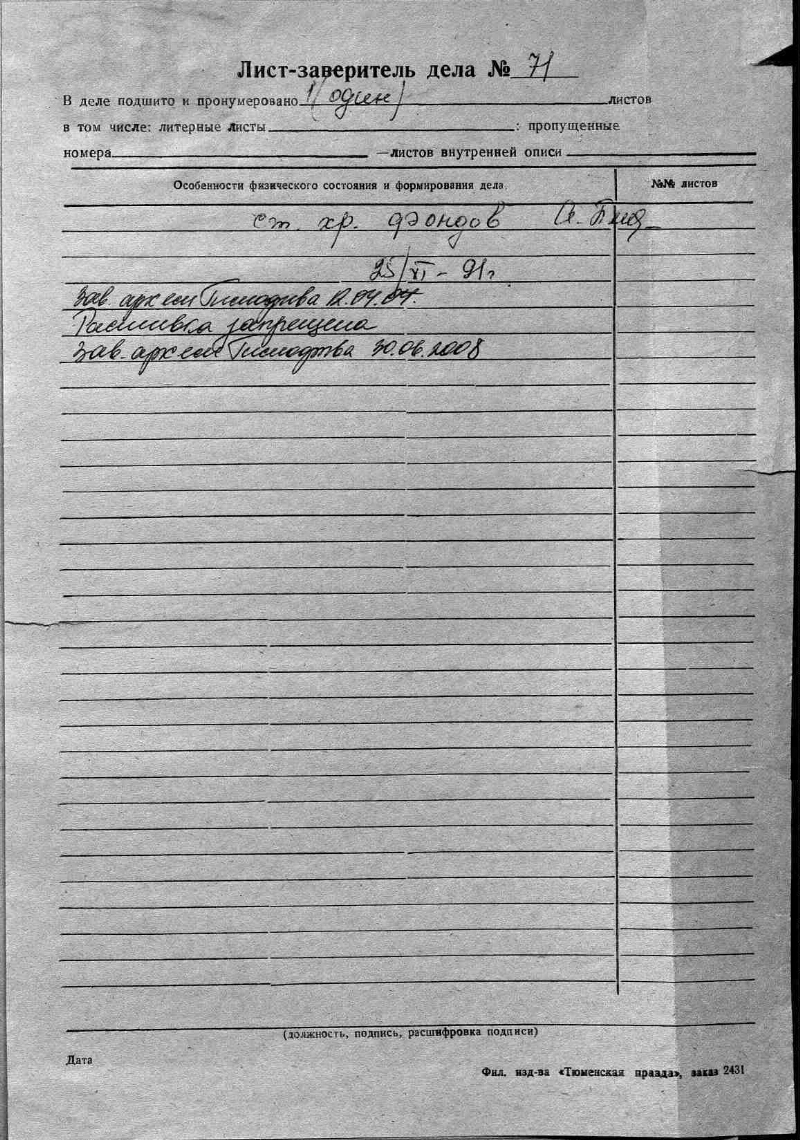 Лист-заверитель дела № 71
В деле подшито и пронумеровано 1 (один) листов
в том числе: литерные листы ; пропущенные
номера —листов внутренней описи
Особенности физического состояния и формирования дела. №№ листов
ст. хр. фондов
25/XI - 91г
Зав. архивом 12.04.04.
Расшивка запрещена
Зав. архивом 30.06.2008
(должность, подпись, расшифровка подписи)
Дата
Фил. изд-ва «Тюменская правда», заказ 2431